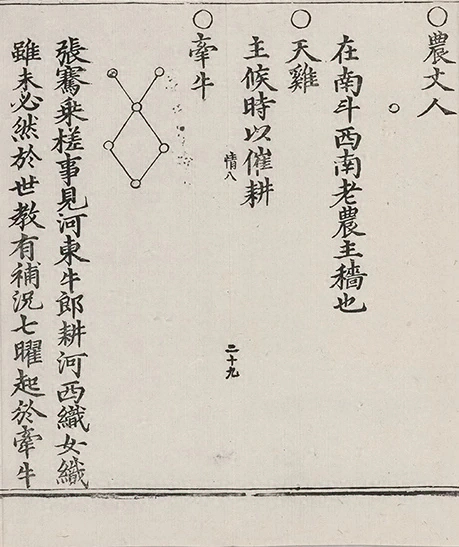 ○農丈人
在南斗西南老農主穡也
○天雞
主候時以催耕
情八
二十九
○牽牛
張騫乗槎事見河東牛郎耕河西織女織
雖未必然於世教有補況七曜起於牽牛